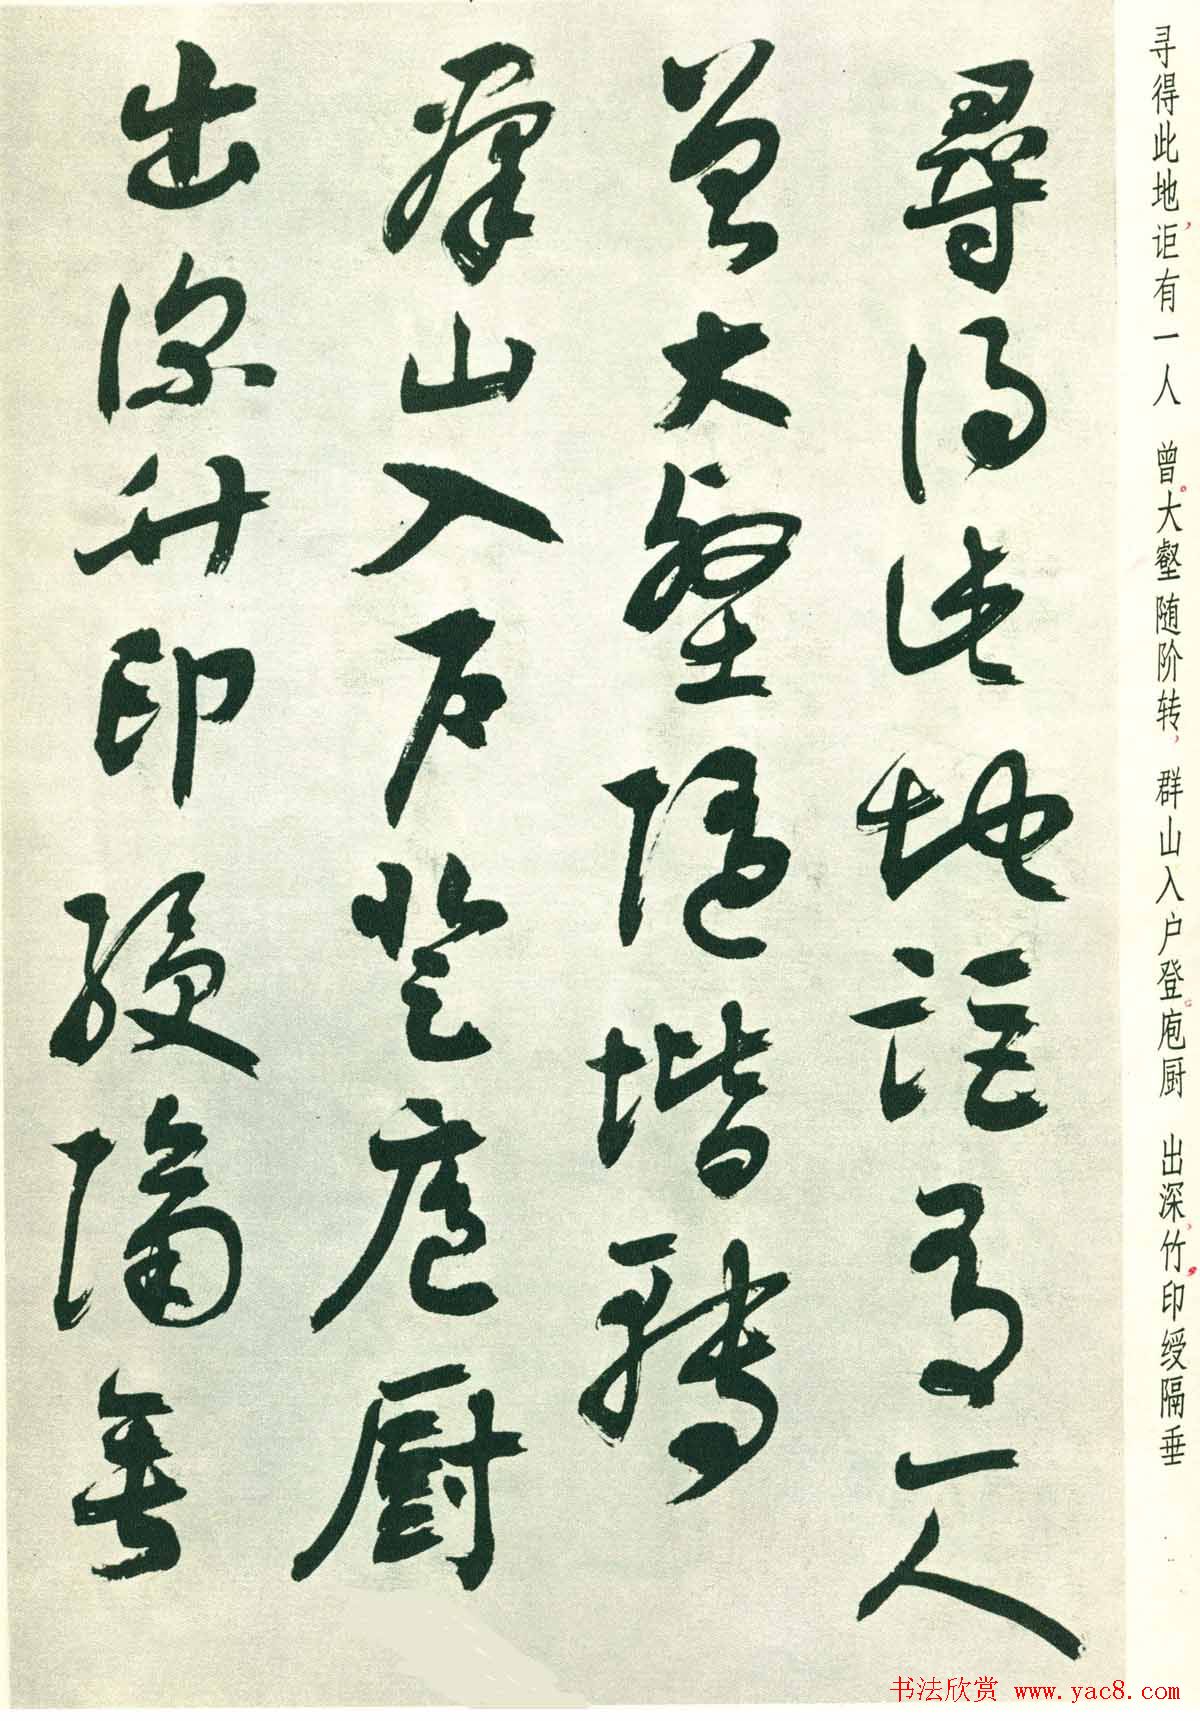 尋得此地詎有一人
曾大壑隨堦轉
群山入戶登庖厨
出深竹印綬隔垂
寻得此地，讵有一人　曾。大壑随阶转，群山入户登。庖厨　出深，竹，印绶隔垂
书法欣赏 www.yac8.com